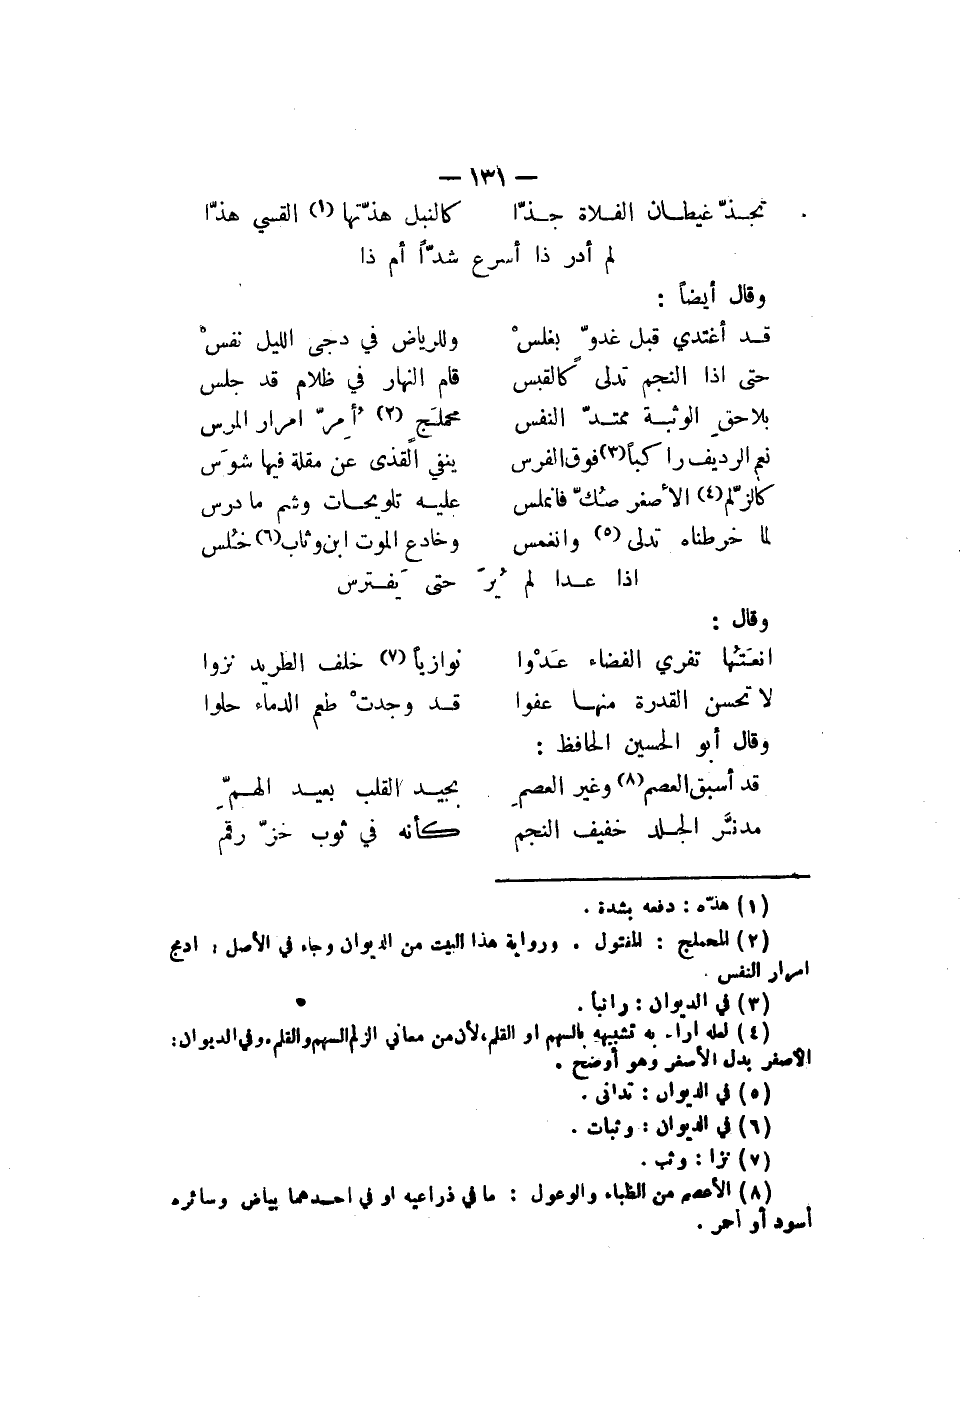 — ١٣١ —
تجذّ غيطان الفلاة جذّا كالنبل هذّتها (١) القسي هذّا
لم أدر ذا أسرع شدّاً أم ذا
وقال أيضاً :
قد أغتدي قبل غدوّ بغلسْ وللرياض في دجى الليل نفسْ
حتى اذا النجم تدلى كالقبس قام النهار في ظلام قد جلس
بلاحقِ الوثبة ممتدّ النفس محملَج (٢) أُمِرّ امرار المرس
نعم الرديف راكباً (٣) فوق الفرس ينفي القذى عن مقلة فيها شوَس
كالزّلم (٤) الأصغر صُكّ فانملس عليه تلويحات وشم ما درس
لما خرطناه تدلى (٥) وانغمس وخادع الموت ابن وثاب (٦) خُلس
اذا عدا لم يُرَ حتى يَفترس
وقال :
انعَتُها تفري الفضاء عَدْوا نوازياً (٧) خلف الطريد نزوا
لا تحسن القدرة منها عفوا قد وجدتْ طعم الدماء حلوا
وقال أبو الحسين الحافظ :
قد أسبق العصم (٨) وغير العصمِ بجيد القلب بعيد الهمِّ
مدنَّر الجلد خفيف النجم كأنه في ثوب خزّ رقم
(١) هذّه : دفعه بشدة .
(٢) المحملج : المفتول . ورواية هذا البيت من الديوان وجاء في الأصل : ادمج
امرار النفس .
(٣) في الديوان : رانباً .
(٤) لعله أراد به تشبيهه بالسهم او القلم، لأن من معاني الزلم السهم والقلم، وفي الديوان :
الأصفر بدل الأصغر وهو أوضح .
(٥) في الديوان : تدانى .
(٦) في الديوان : وثبات .
(٧) نزا : وثب .
(٨) الأعصم من الظباء والوعول : ما في ذراعيه او في احدهما بياض وسائره
أسود أو أحمر .